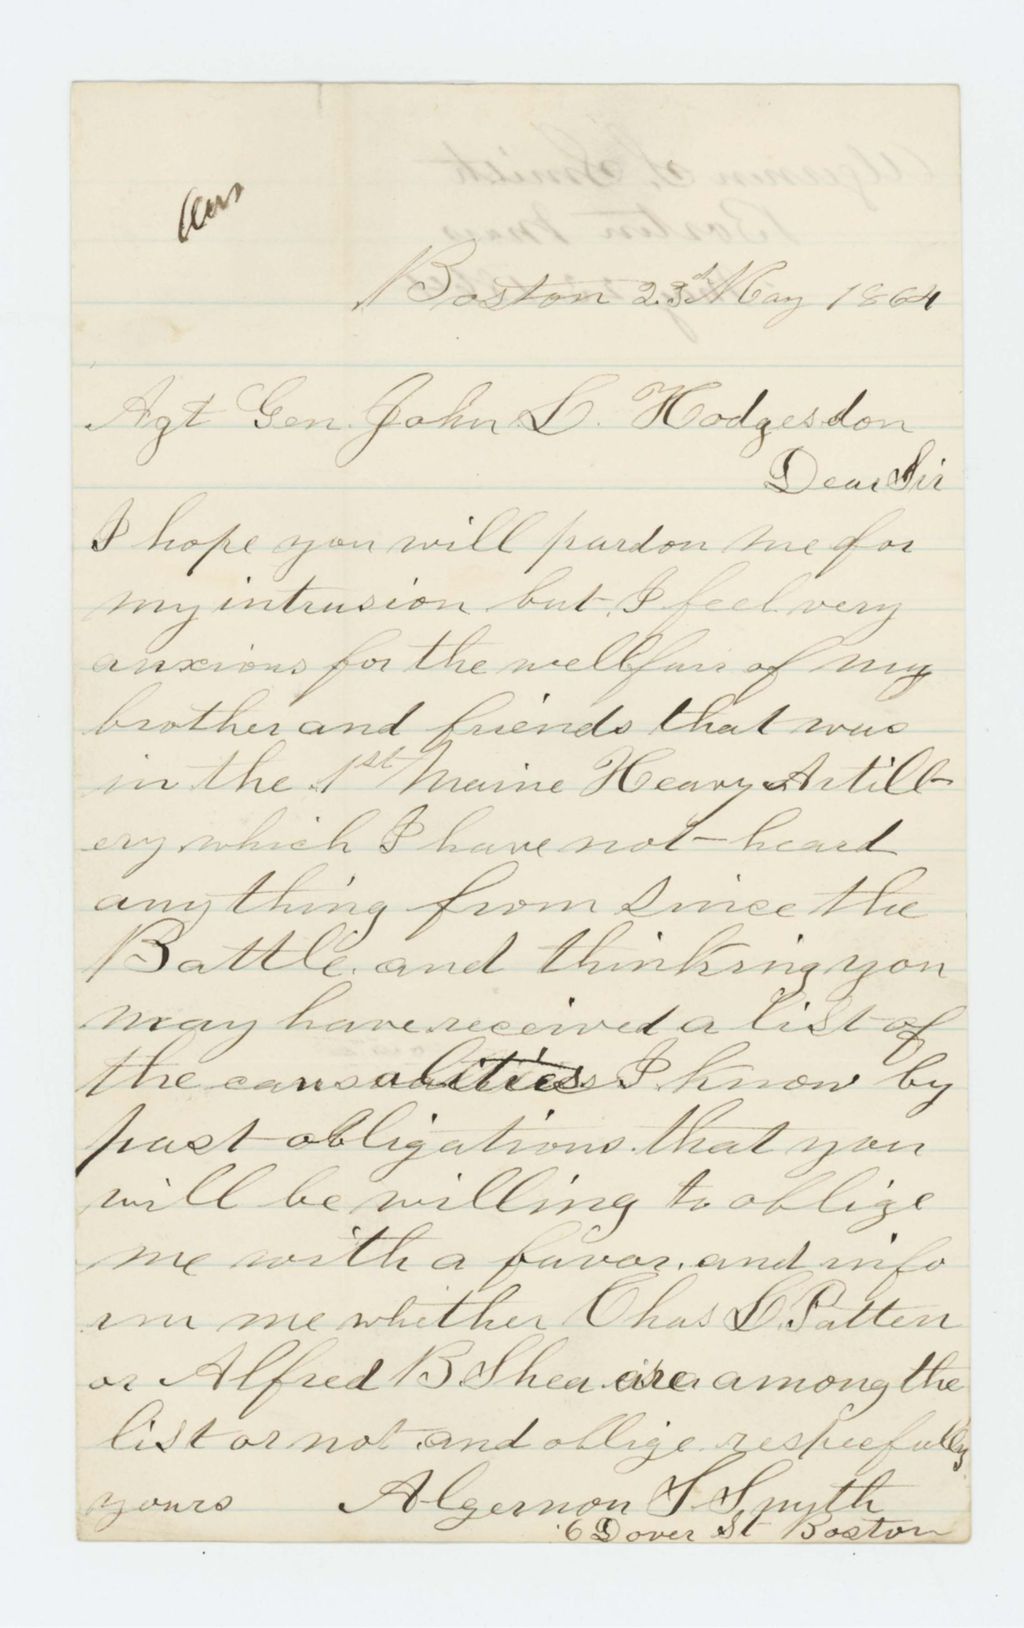 Ans
Boston 23d May 1864
Agt Gen. John L. Hodgesdon
Dear Sir
I hope you will pardon me for
my intrusion but I feel very
anxious for the wellfair of my
brother and friends that was
in the 1st Maine Heavy Artill-
ery which I have not heard
anything from since the
Battle. and thinking you
may have received a list of
the causalities I know by
past obligations that you
will be willing to oblige
me with a favor. and info
rm me whether Chas L. Patten
or Alfred B. Shea are among the
list or not and oblige respecfully
yours Algernon S. Smyth
6 Dover St Boston